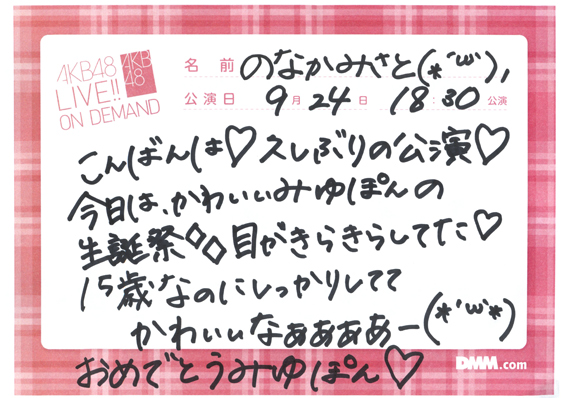 AKB48
LIVE!!
ON DEMAND
AKB
48
名前 のなかみさと(*´ω`),
公演日 9月24日 18:30 公演
こんばんは♡久しぶりの公演♡
今日は、かわいぃみゆぽんの
生誕祭◇◇目がきらきらしてた♡
15歳なのにしっかりしてて
かわいぃなぁぁぁぁー(*´ω`*)
おめでとうみゆぽん♡
DMM.com